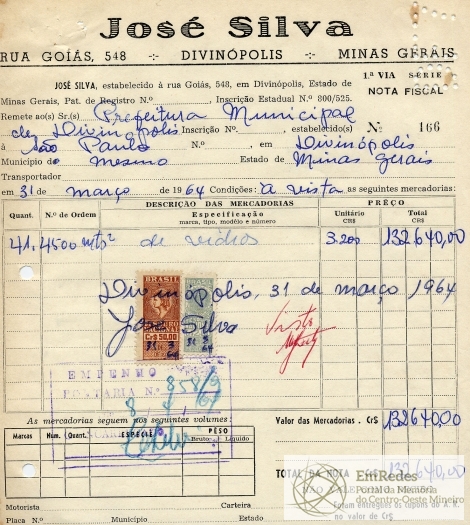 José Silva
RUA GOIÁS, 548 -:- DIVINÓPOLIS -:- MINAS GERAIS
JOSÉ SILVA, estabelecido à rua Goiás, 548, em Divinópolis, Estado de
Minas Gerais, Pat. de Registro N.º Inscrição Estadual N.º 800/525.
1.ª VIA SÉRIE
NOTA FISCAL
Remete ao(s) Sr.(s) Prefeitura Municipal
de Divinópolis Inscrição N.º estabelecido(s) Nº 166
à São Paulo N.º em Divinópolis
Município do mesmo Estado de Minas Gerais
Transportador
em 31 de março de 1964 Condições: à vista as seguintes mercadorias:
Quant. N.º de Ordem DESCRIÇÃO DAS MERCADORIAS PREÇO
Especificação
marca, tipo, modêlo e número
Unitário CR$ Total CR$
41.4500 mts² de vidros 3.200 132.640,00
BRASIL
Divinópolis, 31 de março / 1964
José Silva
Visto
Cr$ 50,00
31 3 64
31 3 64
EMPENHO
PORTARIA N.º 858/9
As mercadorias seguem nos seguintes volumes:
Valor das Mercadorias . Cr$ 132.640,00
Marcas Num. Quant. ESPÉCIE PÊSO
Bruto Líquido
TOTAL DA NOTA Cr$ 132.640,00
EmRedes
Portal da Memória
do Centro-Oeste Mineiro
Foram entregues os cupons da A. R.
no valor de Cr$
Motorista Carteira
Placa N.º Município Estado